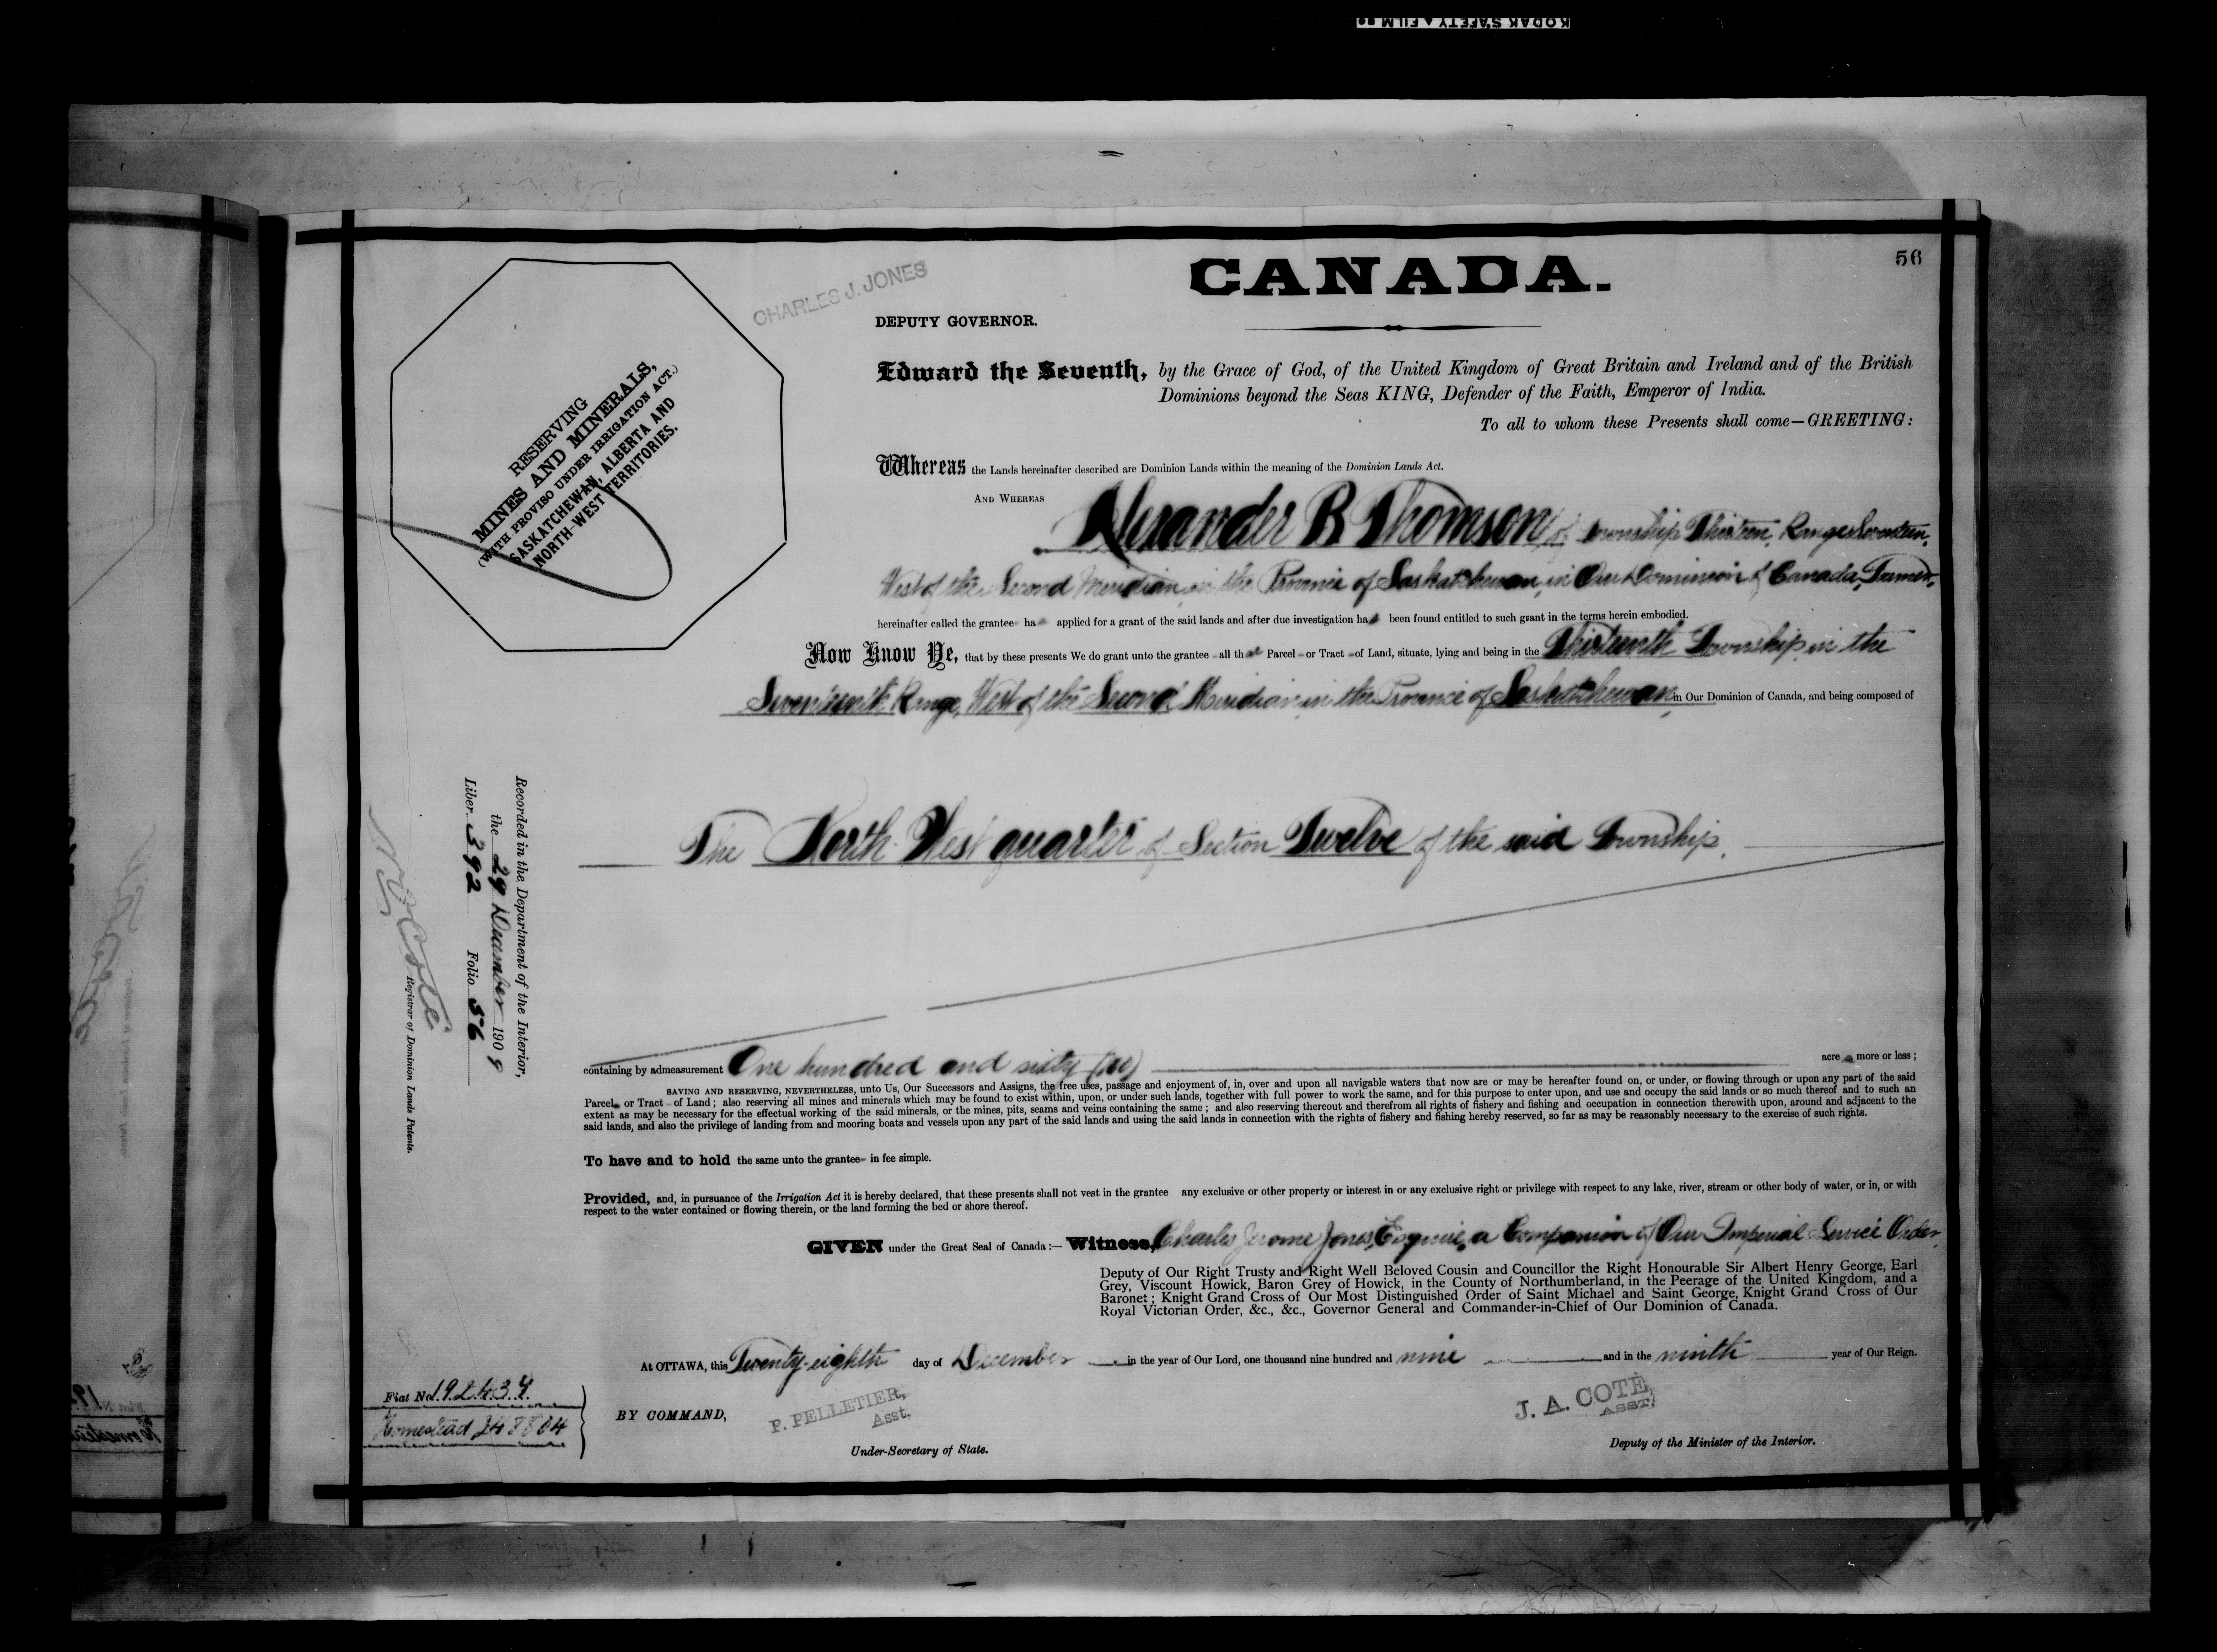 KODAK SAFETY FILM
56
CANADA.
CHARLES J. JONES
DEPUTY GOVERNOR.
RESERVING
MINES AND MINERALS,
(WITH PROVISO UNDER IRRIGATION ACT.)
SASKATCHEWAN, ALBERTA AND
NORTH-WEST TERRITORIES.
Edward the Seventh, by the Grace of God, of the United Kingdom of Great Britain and Ireland and of the British
Dominions beyond the Seas KING, Defender of the Faith, Emperor of India.
To all to whom these Presents shall come—GREETING:
Whereas the Lands hereinafter described are Dominion Lands within the meaning of the Dominion Lands Act.
AND WHEREAS Alexander B Thomson of Township Thirteen, Range Seventeen,
West of the Second Meridian, in the Province of Saskatchewan, in Our Dominion of Canada, Farmer,
hereinafter called the grantee ha applied for a grant of the said lands and after due investigation ha been found entitled to such grant in the terms herein embodied.
Now Know Ye, that by these presents We do grant unto the grantee all that Parcel or Tract of Land, situate, lying and being in the Thirteenth Township, in the
Seventeenth Range, West of the Second Meridian, in the Province of Saskatchewan, in Our Dominion of Canada, and being composed of
The North West quarter of Section Twelve of the said Township.
containing by admeasurement One hundred and sixty (160) acres more or less;
SAVING AND RESERVING, NEVERTHELESS, unto Us, Our Successors and Assigns, the free uses, passage and enjoyment of, in, over and upon all navigable waters that now are or may be hereafter found on, or under, or flowing through or upon any part of the said
Parcel or Tract of Land; also reserving all mines and minerals which may be found to exist within, upon, or under such lands, together with full power to work the same, and for this purpose to enter upon, and use and occupy the said lands or so much thereof and to such an
extent as may be necessary for the effectual working of the said minerals, or the mines, pits, seams and veins containing the same; and also reserving thereout and therefrom all rights of fishery and fishing and occupation in connection therewith upon, around and adjacent to the
said lands, and also the privilege of landing from and mooring boats and vessels upon any part of the said lands and using the said lands in connection with the rights of fishery and fishing hereby reserved, so far as may be reasonably necessary to the exercise of such rights.
To have and to hold the same unto the grantee in fee simple.
Provided, and, in pursuance of the Irrigation Act it is hereby declared, that these presents shall not vest in the grantee any exclusive or other property or interest in or any exclusive right or privilege with respect to any lake, river, stream or other body of water, or in, or with
respect to the water contained or flowing therein, or the land forming the bed or shore thereof.
GIVEN under the Great Seal of Canada:— Witness, Charles Jerome Jones, Esquire, a Companion of Our Imperial Service Order,
Deputy of Our Right Trusty and Right Well Beloved Cousin and Councillor the Right Honourable Sir Albert Henry George, Earl
Grey, Viscount Howick, Baron Grey of Howick, in the County of Northumberland, in the Peerage of the United Kingdom, and a
Baronet; Knight Grand Cross of Our Most Distinguished Order of Saint Michael and Saint George, Knight Grand Cross of Our
Royal Victorian Order, &c., &c., Governor General and Commander-in-Chief of Our Dominion of Canada.
At OTTAWA, this Twenty-eighth day of December in the year of Our Lord, one thousand nine hundred and nine and in the ninth year of Our Reign.
BY COMMAND,
P. PELLETIER,
Asst.
Under-Secretary of State.
J. A. COTÉ,
ASST.
Deputy of the Minister of the Interior.
Fiat No. 192434
Homestead 248804
Recorded in the Department of the Interior,
the 29 December 1909
Liber 392 Folio 56
N. O. Coté
Registrar of Dominion Lands Patents.